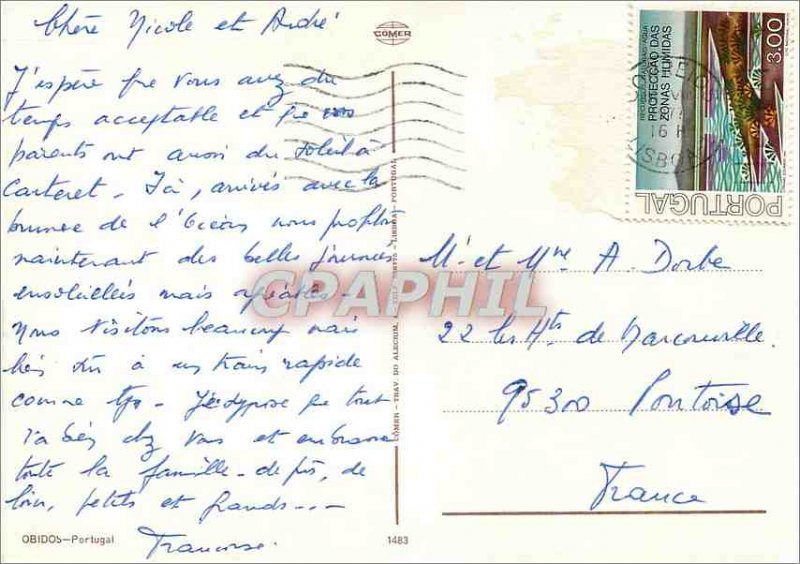 Chère Nicole et André
J'espère que vous avez du
temps acceptable et que vos
parents ont aussi du soleil à
Carteret - Ici, arrivés avec la
brume de l'Océan nous profitons
maintenant des belles journées
ensoleillées mais
Nous visitons beaucoup mais
bien sûr à un train rapide
comme tjs - J'espère que tout
va bien chez vous et embrasse
toute la famille - de près, de
loin, petits et grands - - -
Françoise
OBIDOS-Portugal
1483
COMER
COMER - TRAV. DO ALECRIM, - LISBOA - PORTUGAL
PROTECÇÃO DAS
ZONAS HÚMIDAS
3.00
PORTUGAL
16 H
LISBOA
Mr et Mme A. Dorbe
22 les Hts de Marcouville
95300 Pontoise
France
CPAPHIL